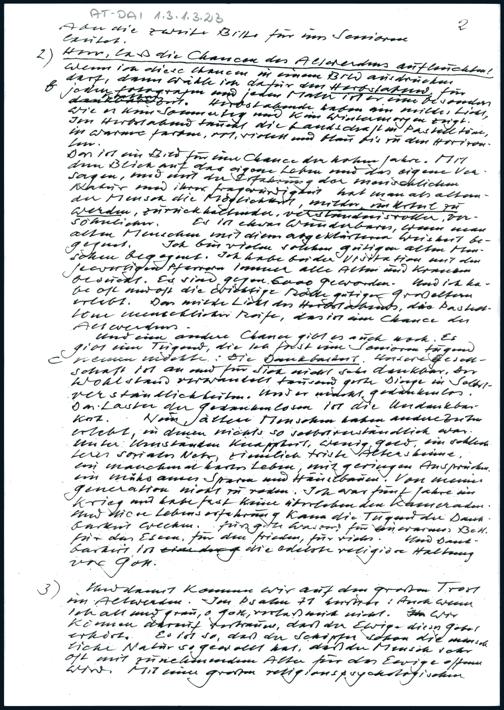 AT-DAI 1.3.1.3.23
2
Aber die zweite Bitte für uns Senioren
lautet:
2) Herr, laß die Chancen des Altwerdens aufleuchten!
Wenn ich diese Chancen in einem Bild ausdrücken
darf, dann wähle ich dafür den Herbstabend, für
jeden Fotografen und jeden Maler ist er eine besondere
Kostbarkeit. Herbstabende haben ein mildes Licht,
wie es kein Sommertag und kein Wintermorgen zeigt.
Im Herbstabend taucht die Landschaft in Pastelltöne,
in warme Farben, rot, violett und blau bis zu den Horizon-
ten.
Das ist ein Bild für eine Chance der hohen Jahre. Mit
dem Blick auf das eigene Leben und das eigene Ver-
sagen, und mit der Erfahrung der menschlichen
Natur und ihrer Fragwürdigkeit hat man als altern-
der Mensch die Möglichkeit, milder, im Urteil zu
werden, zurückhaltender, verständnisvoller, ver-
söhnlicher. Es ist etwas Wunderbares, wenn man
alten Menschen mit dieser abgeklärten Weisheit be-
gegnet. Ich bin vielen solchen gütigen alten Men-
schen begegnet. Ich habe bei der Visitation mit den
jeweiligen Pfarrern immer alle Alten und Kranken
besucht. Es sind gegen 6000 geworden. Und ich ha-
be oft und oft die wichtige Rolle gütiger Großeltern
erlebt. Das milde Licht des Herbstabends, das Pastell-
tönen menschlicher Reife, das ist eine Chance des
Altwerdens.
Und eine andere Chance gibt es auch noch. Es
gibt eine Tugend, die ich fast eine Senioren Tugend
c nennen möchte: Die Dankbarkeit. Unsere Gesell-
schaft ist an und für sich nicht sehr dankbar. Der
Wohlstand verwandelt tausend gute Dinge in Selbst-
verständlichkeiten. Und er macht gedankenlos.
Das Laster der Gedankenlosen ist die Undankbar-
keit. Nun, ältere Menschen haben andere Zeiten
erlebt, in denen nichts so selbstverständlich war.
Unter Umständen Knappheit, wenig Geld, ein schlech-
teres soziales Netz, ziemlich triste Altersheime,
ein manchmal hartes Leben, mit geringen Ansprüchen,
ein mühsames Sparen und Häuselbauen. Von meiner
Generation nicht zu reden. Ich war fünf Jahre im
Krieg und habe fast keine überlebenden Kameraden.
Und diese Lebenserfahrung kann die Tugend der Dank-
barkeit wecken. für gutes Wasser, für ein warmes Bett.
für das Essen, für den Frieden, für vieles. Und Dank-
barkeit ist die edelste religiöse Haltung
vor Gott.
3) Und damit kommen wir auf den großen Trost
im Altwerden: Im Psalm 71 heißt es: Auch wenn
ich alt und grau, o Gott, verlaß mich nicht. Wir
können darauf vertrauen, daß der Ewige dieses Gebet
erhört. Es ist so, daß der Schöpfer schon die mensch-
liche Natur so gewollt hat, daß der Mensch sehr
oft mit zunehmendem Alter für das Ewige offener
wird. Mit einer großen religionspsychologischen